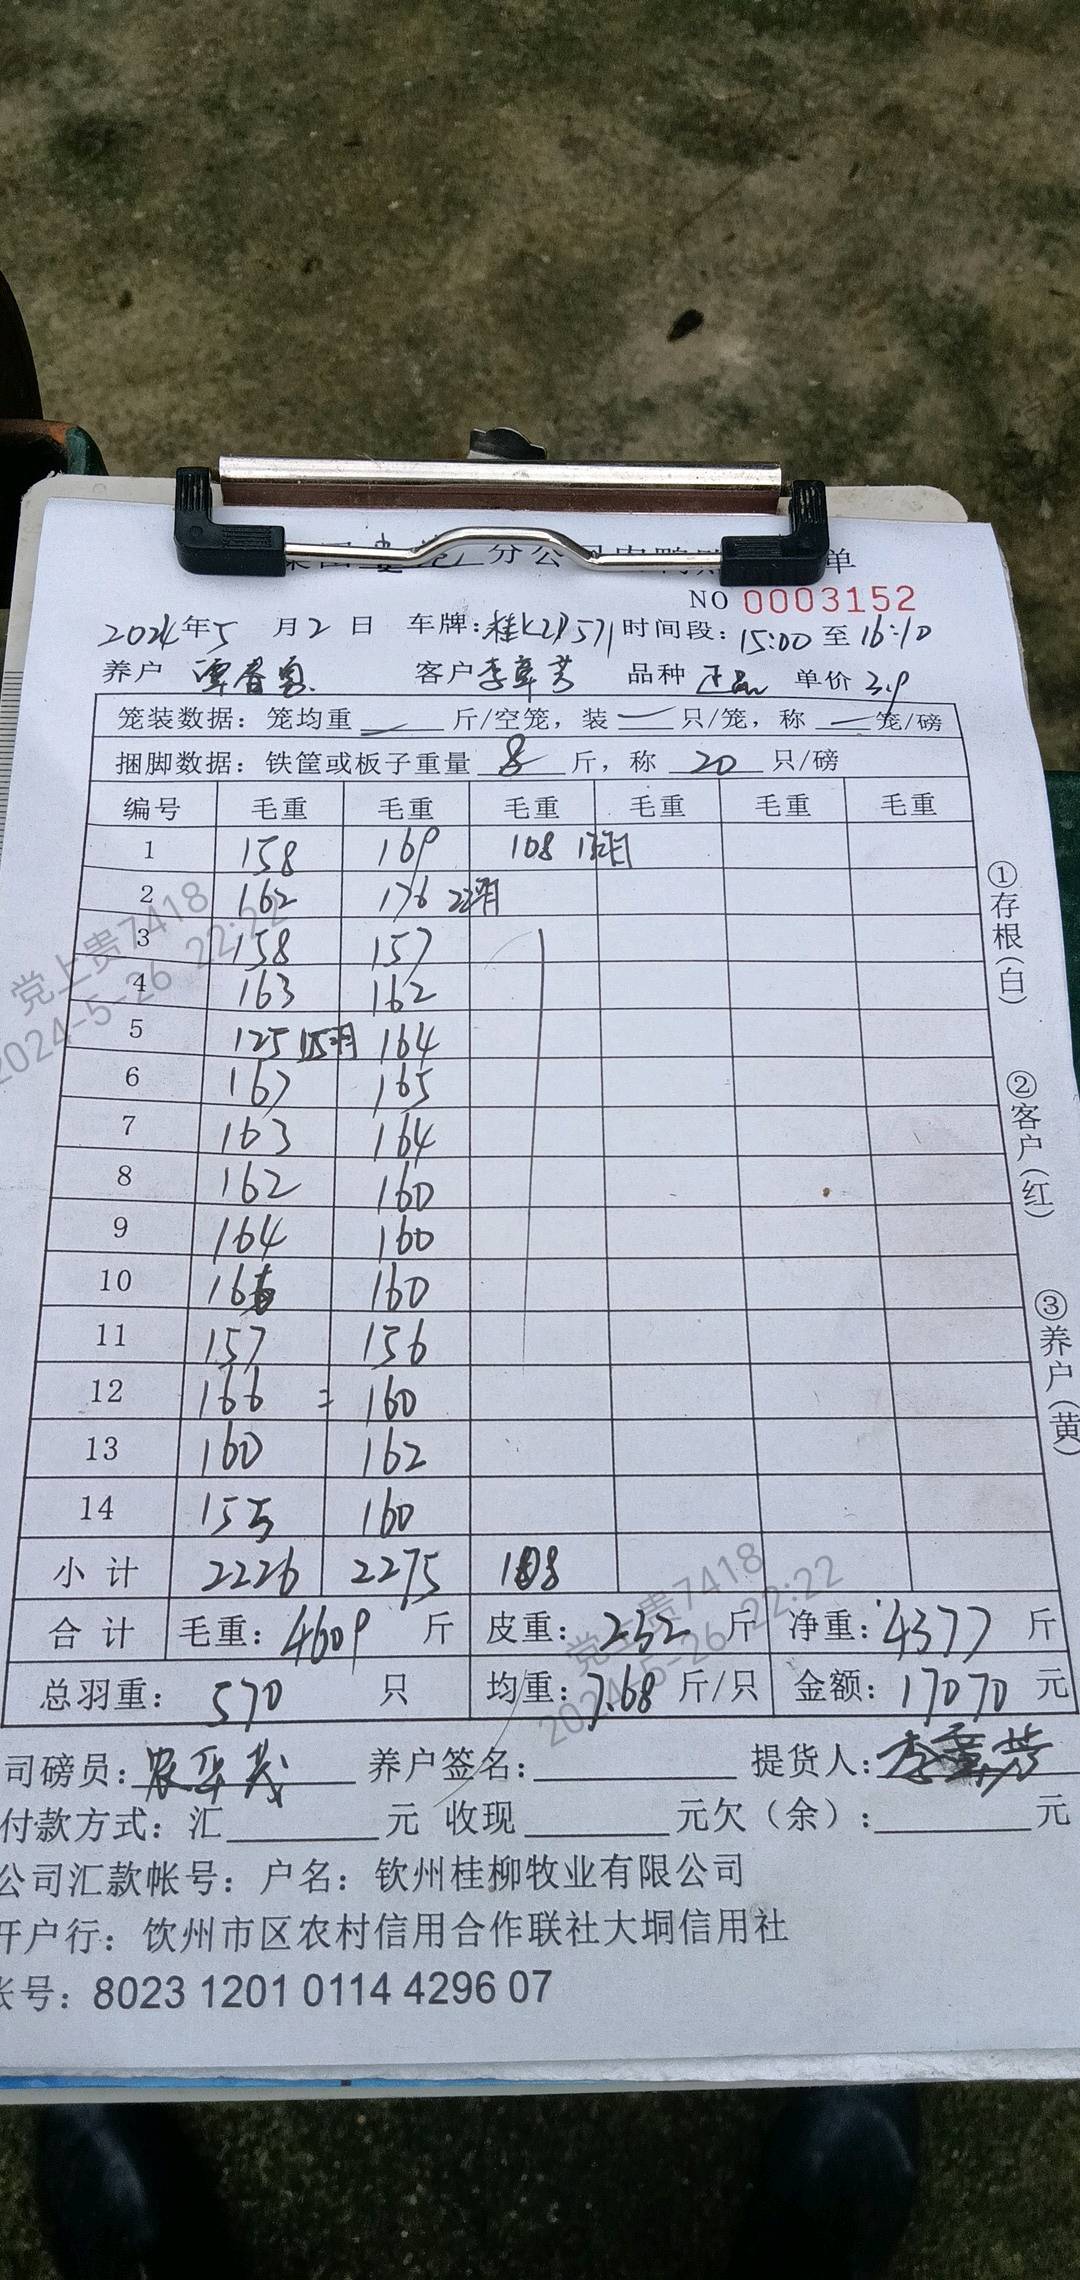 集团 分公司肉鸭 单
NO 0003152
2024年5月2日 车牌:桂K21571 时间段:15:00至16:10
养户 覃春勇 客户李章芳 品种 正品 单价 3.9
笼装数据: 笼均重 — 斤/空笼, 装 — 只/笼, 称 — 笼/磅
捆脚数据: 铁筐或板子重量 8 斤, 称 20 只/磅
编号 毛重 毛重 毛重 毛重 毛重 毛重
1 158 169 108 13只
2 162 176 22只
3 158 157
4 163 162
5 125 15只 164
6 167 165
7 163 164
8 162 160
9 164 160
10 166 160
11 157 156
12 166 = 160
13 160 162
14 155 160
小计 2226 2275 108
合计 毛重: 4609 斤 皮重: 232 斤 净重: 4377 斤
总羽重: 570 只 均重: 7.68 斤/只 金额: 17070 元
司磅员: 农华茂 养户签名: 提货人: 李章芳
付款方式: 汇 元 收现 元欠(余): 元
公司汇款帐号: 户名: 钦州桂柳牧业有限公司
开户行: 饮州市区农村信用合作联社大垌信用社
帐号: 8023 1201 0114 4296 07
①存根(白)
②客户(红)
③养户(黄)
党上贵7418
2024-5-26 22:22
党上贵7418
2024-5-26 22:22